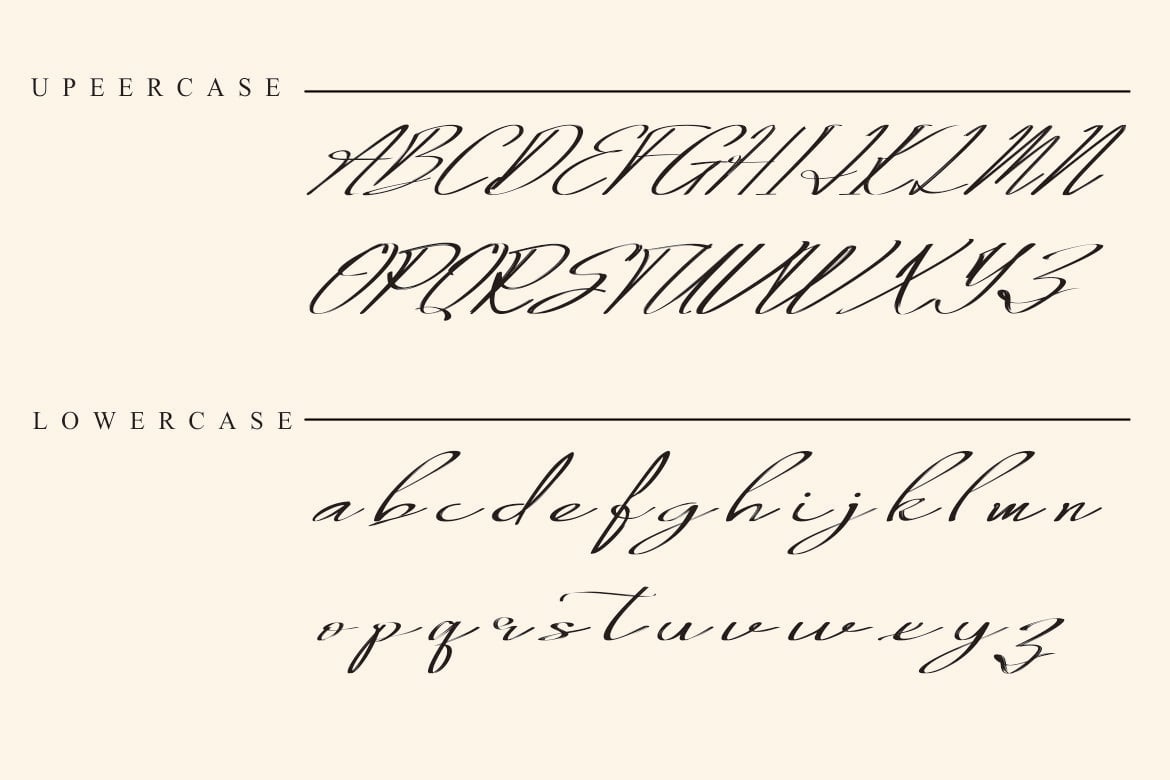 UPEERCASE
ABCDEFGHIJKLMN
OPQRSTUVWXYZ
LOWERCASE
abcdefghijklmn
opqrstuvwxyz